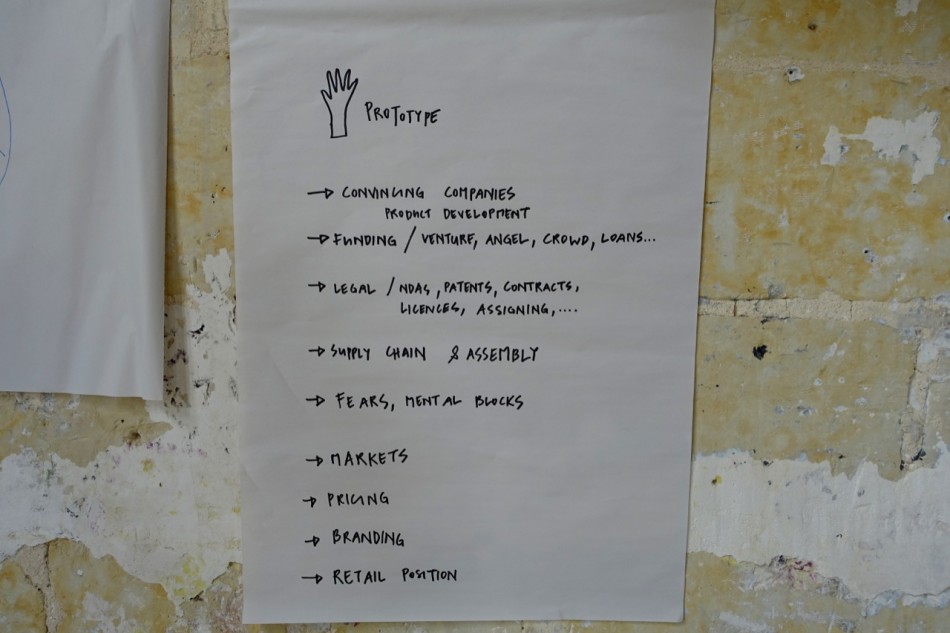 PROTOTYPE
→ CONVINCING COMPANIES
PRODUCT DEVELOPMENT
→ FUNDING / VENTURE, ANGEL, CROWD, LOANS...
→ LEGAL / NDAS, PATENTS, CONTRACTS,
LICENCES, ASSIGNING, ....
→ SUPPLY CHAIN & ASSEMBLY
→ FEARS, MENTAL BLOCKS
→ MARKETS
→ PRICING
→ BRANDING
→ RETAIL POSITION